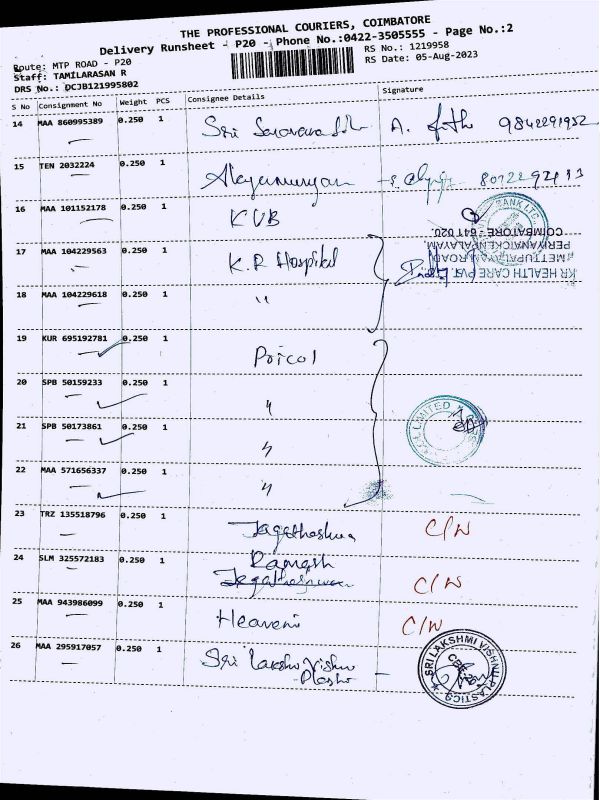 THE PROFESSIONAL COURIERS, COIMBATORE
Delivery Runsheet - P20 - Phone No.:0422-3505555 - Page No.:2
Route: MTP ROAD - P20
RS No.: 1219958
Staff: TAMILARASAN R
RS Date: 05-Aug-2023
DRS No.: DCJB121995802
S No Consignment No Weight PCS Consignee Details Signature
14 MAA 860995389 0.250 1 Sri A. 9842291952
15 TEN 2032224 0.250 1
16 MAA 101152178 0.250 1 KVB
BANK LTD
17 MAA 104229563 0.250 1 K.R Hospital
KR HEALTH CARE PVT.
METTUPALAYAM ROAD
PERIYANAICKENPALAYAM,
COIMBATORE - 641 020.
18 MAA 104229618 0.250 1 "
19 KUR 695192781 0.250 1 Pricol
20 SPB 50159233 0.250 1 "
LIMITED
21 SPB 50173861 0.250 1 "
22 MAA 571656337 0.250 1 "
23 TRZ 135518796 0.250 1 C/W
24 SLM 325572183 0.250 1 Ramesh C/W
25 MAA 943986099 0.250 1 C/W
26 MAA 295917057 0.250 1 Sri Vishnu
SRI LAKSHMI VISHNU PLASTICS
CBE